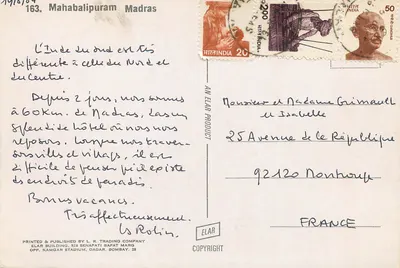 19/8/84
163. Mahabalipuram Madras
L'Inde du Sud est très
différente à celle du Nord et
du Centre.
Depuis 2 jours, nous sommes
à 60km. de Madras, dans un
splendide hôtel où nous nous
reposons. Lorsque nous traver-
sons villes et villages, il est
difficile de penser qu'il existe
des endroits de paradis.
Bonnes vacances.
Très affectueusement.
Les Robin.
PRINTED & PUBLISHED BY L. R. TRADING COMPANY
ELAR BUILDING, 334 SENAPATI BAPAT MARG
OPP. KANGAR STADIUM, DADAR, BOMBAY. 28
AN ELAR PRODUCT
ELAR
COPYRIGHT
INDIA 20
INDIA
50
INDIA
Monsieur et Madame Grimault
et Isabelle
25 Avenue de la République
92120 Montrouge
FRANCE